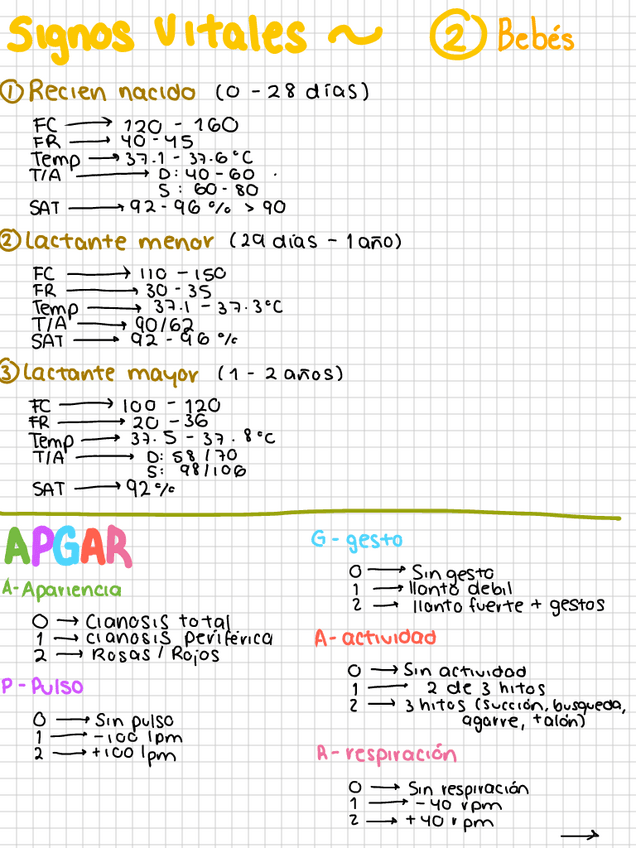 Signos Vitales ~ ② Bebés
① Recien nacido (0 - 28 días)
FC → 120 - 160
FR → 40 - 45
Temp → 37.1 - 37.6°C
T/A → D: 40 - 60
S: 60 - 80
SAT → 92 - 96 % > 90
② Lactante menor (29 días - 1 año)
FC → 110 - 150
FR → 30 - 35
Temp → 37.1 - 37.3°C
T/A → 90/62
SAT → 92 - 96 %
③ Lactante mayor (1 - 2 años)
FC → 100 - 120
FR → 20 - 36
Temp → 37.5 - 37.8°C
T/A → D: 58/70
S: 98/106
SAT → 92 %
APGAR
A - Apariencia
0 → Cianosis total
1 → cianosis periférica
2 → Rosas / Rojos
P - Pulso
0 → Sin pulso
1 → -100 lpm
2 → +100 lpm
G - gesto
0 → Sin gesto
1 → llanto debil
2 → llanto fuerte + gestos
A - actividad
0 → Sin actividad
1 → 2 de 3 hitos
2 → 3 hitos (succión, busqueda,
agarre, talón)
A - respiración
0 → Sin respiración
1 → -40 rpm
2 → +40 rpm
→